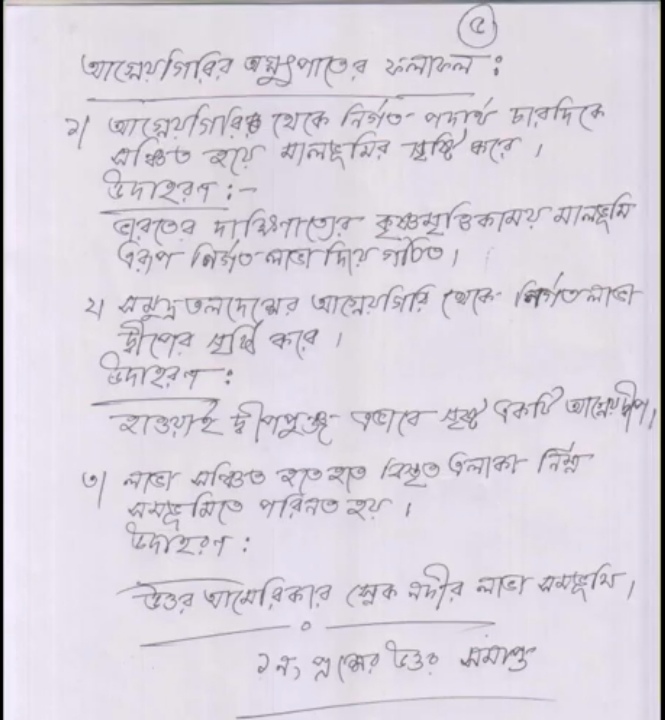 ৫
আগ্নেয়গিরির অগ্ন্যুৎপাতের ফলাফল :
১। আগ্নেয়গিরির থেকে নির্গত পদার্থ চারদিকে
সঞ্চিত হয়ে মালভূমির সৃষ্টি করে।
উদাহরণ :-
ভারতের দাক্ষিণাত্যের কৃষ্ণমৃত্তিকাময় মালভূমি
এরূপ নির্গত লাভা দিয়ে গঠিত।
২। সমুদ্র তলদেশের আগ্নেয়গিরি থেকে নির্গত লাভা
দ্বীপের সৃষ্টি করে।
উদাহরণ :
হাওয়াই দ্বীপপুঞ্জ এভাবে সৃষ্ট একটি আগ্নেয়দ্বীপ।
৩। লাভা সঞ্চিত হতে হতে বিস্তৃত এলাকা নিম্ন
সমভূমিতে পরিনত হয়।
উদাহরণ :
উত্তর আমেরিকার স্নেক নদীর লাভা সমভূমি।
১ নং প্রশ্নের উত্তর সমাপ্ত